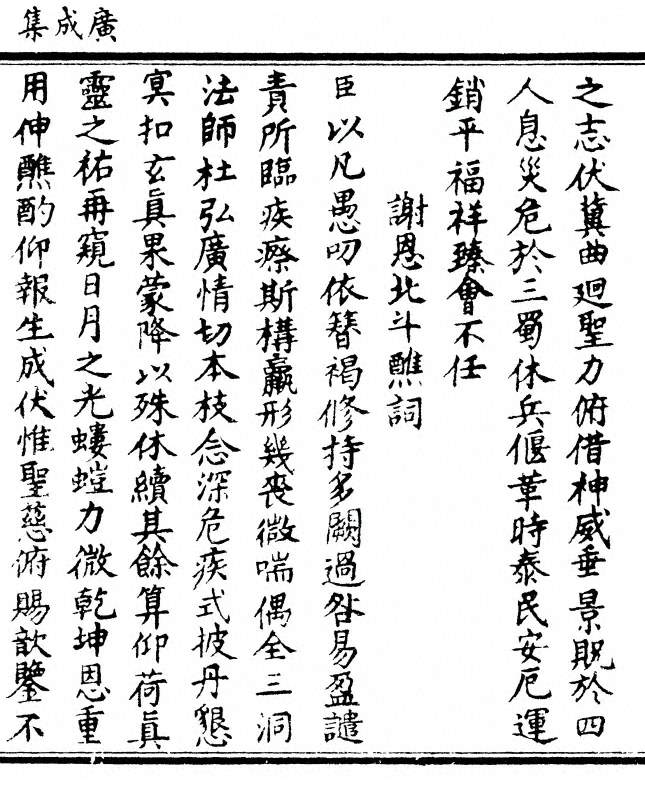 廣成集
之志伏冀曲廻聖力俯借神威垂景貺於四
人息災危於三蜀休兵偃革時泰民安厄運
銷平福祥臻會不任
謝恩北斗醮詞
臣以凡愚叨依簪褐修持多闕過咎易盈譴
責所臨疾瘵斯構羸形幾喪微喘偶全三洞
法師杜弘廣情切本枝念深危疾式披丹懇
冥扣玄眞果蒙降以殊休續其餘算仰荷眞
靈之祐再窺日月之光螻螘力微乾坤恩重
用伸醮酌仰報生成伏惟聖慈俯賜歆鑒不